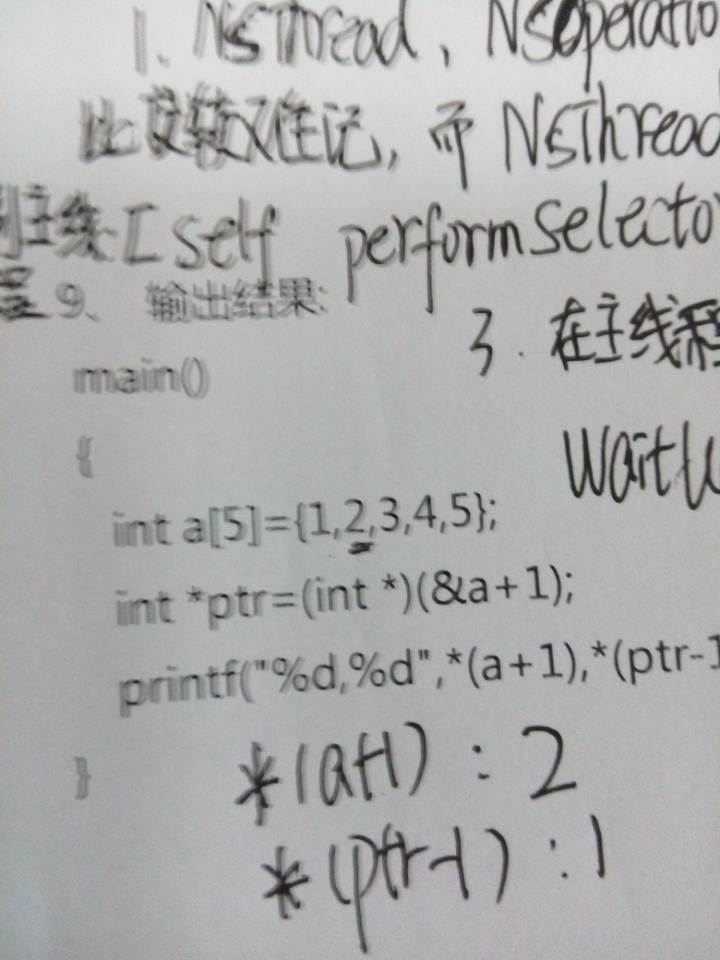 1. NSThread, NSOperatio
比较难记, 而 NSThread
到主线[self performSelecto
9、 输出结果:
3. 在主线程
main()
{
WaitU
int a[5]={1,2,3,4,5};
int *ptr=(int *)(&a+1);
printf("%d,%d",*(a+1),*(ptr-1
}
*(a+1) : 2
*(ptr-1) : 1